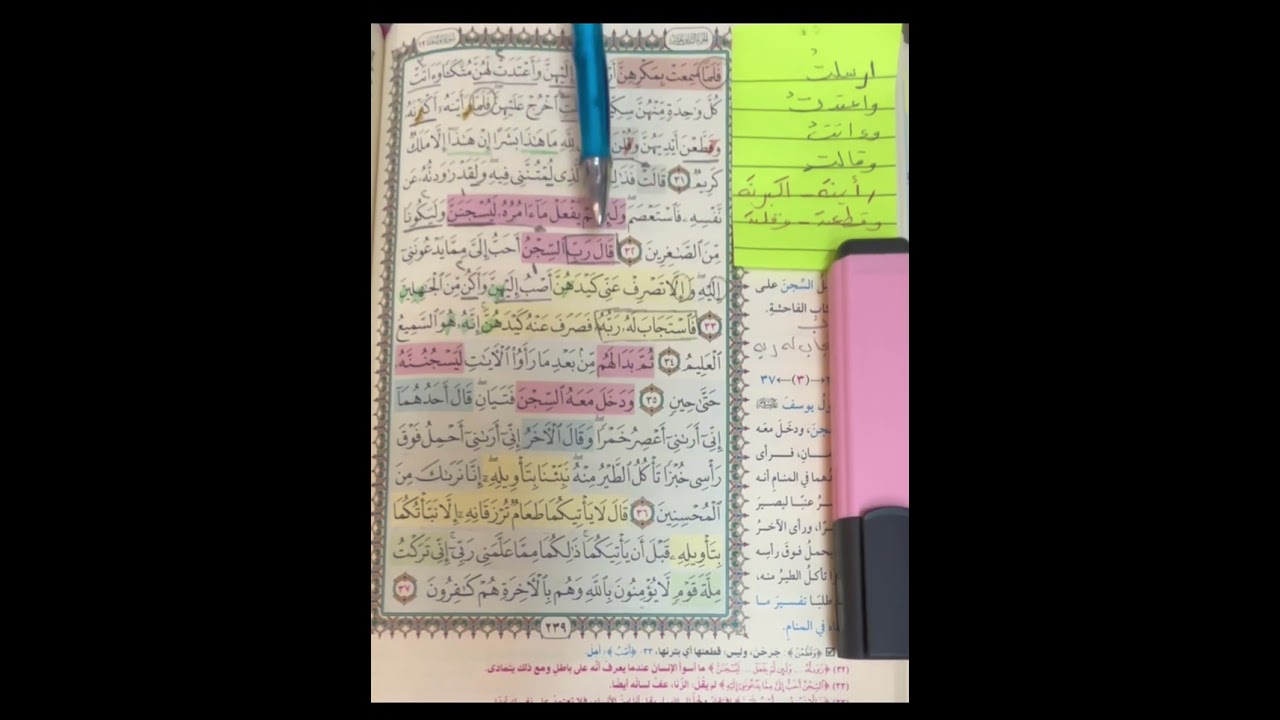 سورة يوسف ١٢
الجزء الثاني عشر
فَلَمَّا سَمِعَتْ بِمَكْرِهِنَّ إِلَيْهِنَّ وَأَعْتَدَتْ لَهُنَّ مُتَّكَـًٔا وَءَاتَتْ
كُلَّ وَٰحِدَةٍ مِّنْهُنَّ ٱخْرُجْ عَلَيْهِنَّ فَلَمَّا رَأَيْنَهُۥٓ أَكْبَرْنَهُۥ
وَقَطَّعْنَ أَيْدِيَهُنَّ وَقُلْنَ لِلَّهِ مَا هَٰذَا بَشَرًا إِنْ هَٰذَآ إِلَّا مَلَكٌ
كَرِيمٌ ٣١ قَالَتْ ٱلَّذِى لُمْتُنَّنِى فِيهِ وَلَقَدْ رَٰوَدتُّهُۥ عَن
نَّفْسِهِۦ فَٱسْتَعْصَمَ يَفْعَلْ مَآ ءَامُرُهُۥ لَيُسْجَنَنَّ وَلَيَكُونًا
مِّنَ ٱلصَّٰغِرِينَ ٣٢ قَالَ رَبِّ ٱلسِّجْنُ أَحَبُّ إِلَىَّ مِمَّا يَدْعُونَنِىٓ
إِلَيْهِ وَإِلَّا تَصْرِفْ عَنِّى كَيْدَهُنَّ أَصْبُ إِلَيْهِنَّ وَأَكُن مِّنَ ٱلْجَٰهِلِينَ
٣٣ فَٱسْتَجَابَ لَهُۥ رَبُّهُۥ فَصَرَفَ عَنْهُ كَيْدَهُنَّ إِنَّهُۥ هُوَ ٱلسَّمِيعُ
ٱلْعَلِيمُ ٣٤ ثُمَّ بَدَا لَهُم مِّنۢ بَعْدِ مَا رَأَوُا۟ ٱلْـَٔايَٰتِ لَيَسْجُنُنَّهُۥ
حَتَّىٰ حِينٍ ٣٥ وَدَخَلَ مَعَهُ ٱلسِّجْنَ فَتَيَانِ قَالَ أَحَدُهُمَآ
إِنِّىٓ أَرَىٰنِىٓ أَعْصِرُ خَمْرًا وَقَالَ ٱلْـَٔاخَرُ إِنِّىٓ أَرَىٰنِىٓ أَحْمِلُ فَوْقَ
رَأْسِى خُبْزًا تَأْكُلُ ٱلطَّيْرُ مِنْهُ نَبِّئْنَا بِتَأْوِيلِهِۦٓ إِنَّا نَرَىٰكَ مِنَ
ٱلْمُحْسِنِينَ ٣٦ قَالَ لَا يَأْتِيكُمَا طَعَامٌ تُرْزَقَانِهِۦٓ إِلَّا نَبَّأْتُكُمَا
بِتَأْوِيلِهِۦ قَبْلَ أَن يَأْتِيَكُمَا ذَٰلِكُمَا مِمَّا عَلَّمَنِى رَبِّىٓ إِنِّى تَرَكْتُ
مِلَّةَ قَوْمٍ لَّا يُؤْمِنُونَ بِٱللَّهِ وَهُم بِٱلْـَٔاخِرَةِ هُمْ كَٰفِرُونَ ٣٧
٢٣٩
ارسلت
واعتدت
وءاتت
وقالت
رأينه - اكبرنه
وقطعنه - وقلنه
السِّجنَ على
الفاحشةِ.
له ربه
(٣)←٣٧
يوسفَ
ودخَلَ معَه
فرأى
في المنامِ أنه
عنبًا ليصيرَ
ورأى الآخرُ
يحملُ فوقَ رأسِه
تأكلُ الطيرُ منه،
طلبًا تفسيرَ ما
في المنامِ.
﴿وَقَطَّعْنَ﴾: جرحْنَ، وليس: قطعنها أي بترنها، ٣٣- ﴿أَصْبُ﴾: أمل.
(٣٢) ما أسوأ الإنسان عندما يعرفُ أنَّه على باطلٍ ومع ذلك يتمادى.
(٣٣) لم يقُلْ: الزِّنا، عفَّ لسانُه أيضًا.